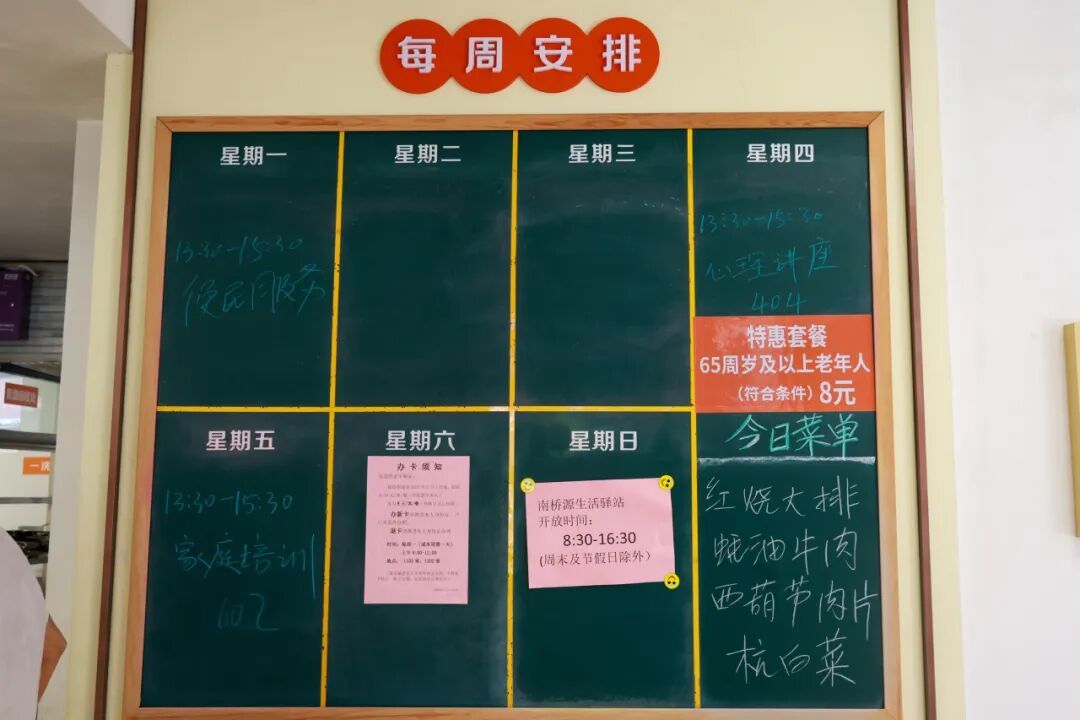 每周安排
星期一
13:30-15:30
便民服务
星期二
星期三
星期四
13:30-15:30
心理讲座
404
特惠套餐
65周岁及以上老年人
(符合条件) 8元
今日菜单
红烧大排
蚝油牛肉
西葫芦肉片
杭白菜
星期五
13:30-15:30
家庭培训
602
星期六
办卡须知
星期日
南桥源生活驿站
开放时间:
8:30-16:30
(周末及节假日除外)